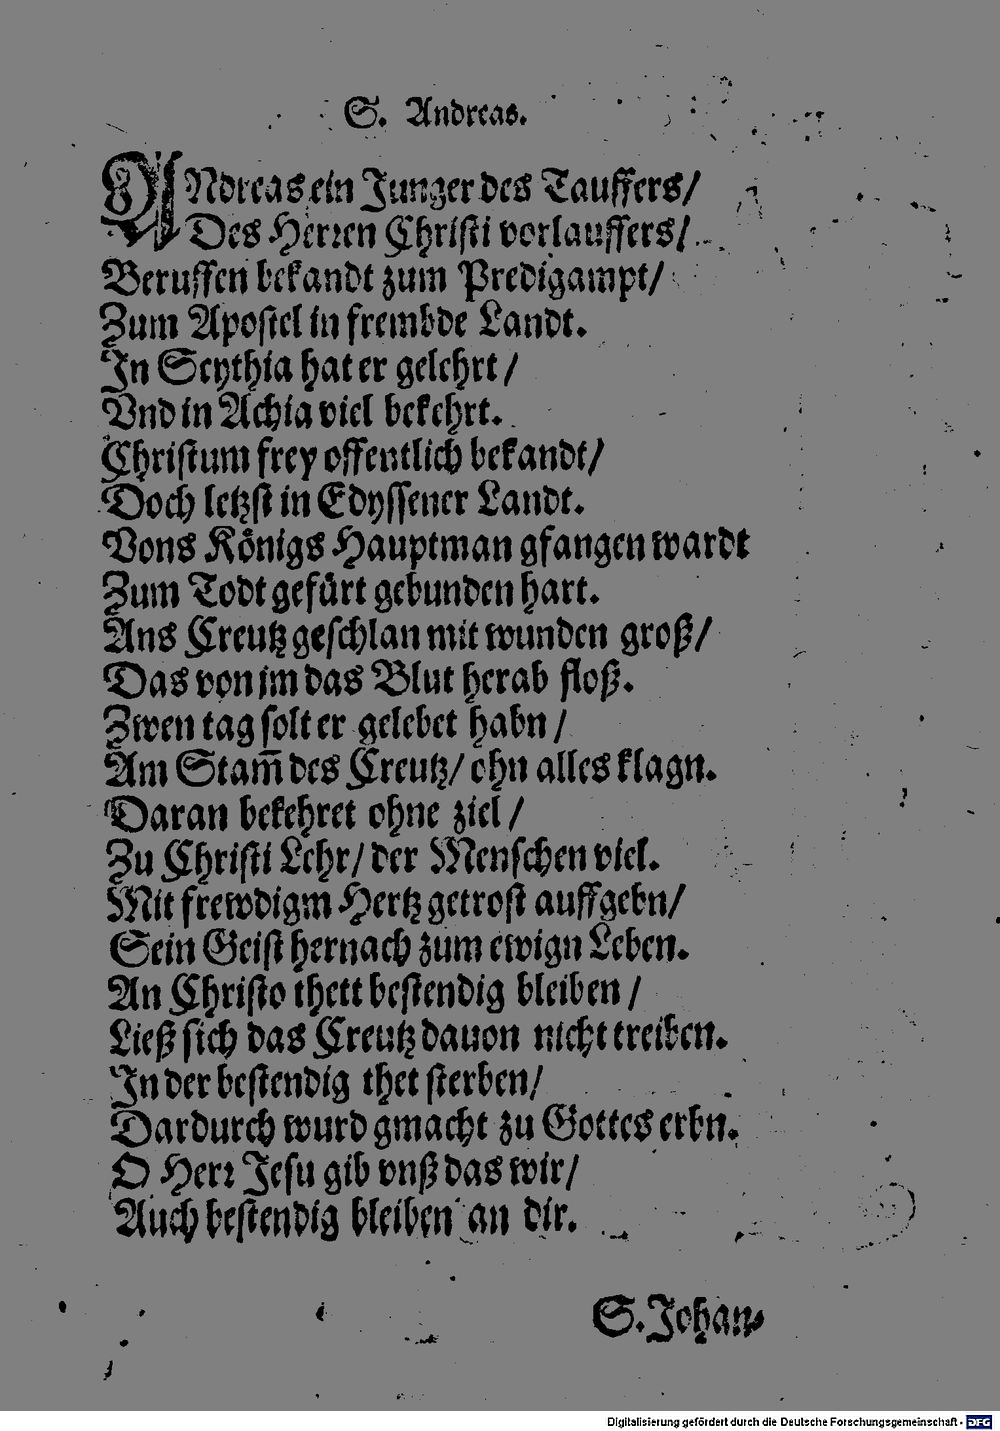 S. Andreas.
ANdreas ein Junger des Tauffers/
Des Herren Christi vorlauffers/
Beruffen bekandt zum Predigampt/
Zum Apostel in frembde Landt.
In Scythia hat er gelehrt/
Vnd in Achia viel bekehrt.
Christum frey offentlich bekandt/
Doch letzst in Edyssener Landt.
Vons Königs Hauptman gfangen wardt
Zum Todt gefürt gebunden hart.
Ans Creutz geschlan mit wunden groß/
Das von jm das Blut herab floß.
Zwen tag solt er gelebet habn/
Am Stam̃ des Creutz/ ohn alles klagn.
Daran bekehret ohne ziel/
Zu Christi Lehr/ der Menschen viel.
Mit frewdigm Hertz getrost auffgebn/
Sein Geist hernach zum ewign Leben.
An Christo thett bestendig bleiben/
Ließ sich das Creutz dauon nicht treiben.
In der bestendig thet sterben/
Dardurch wurd gmacht zu Gottes erbn.
O Herr Jesu gib vnß das wir/
Auch bestendig bleiben an dir.
S. Johan⸗
Digitalisierung gefördert durch die Deutsche Forschungsgemeinschaft - DFG